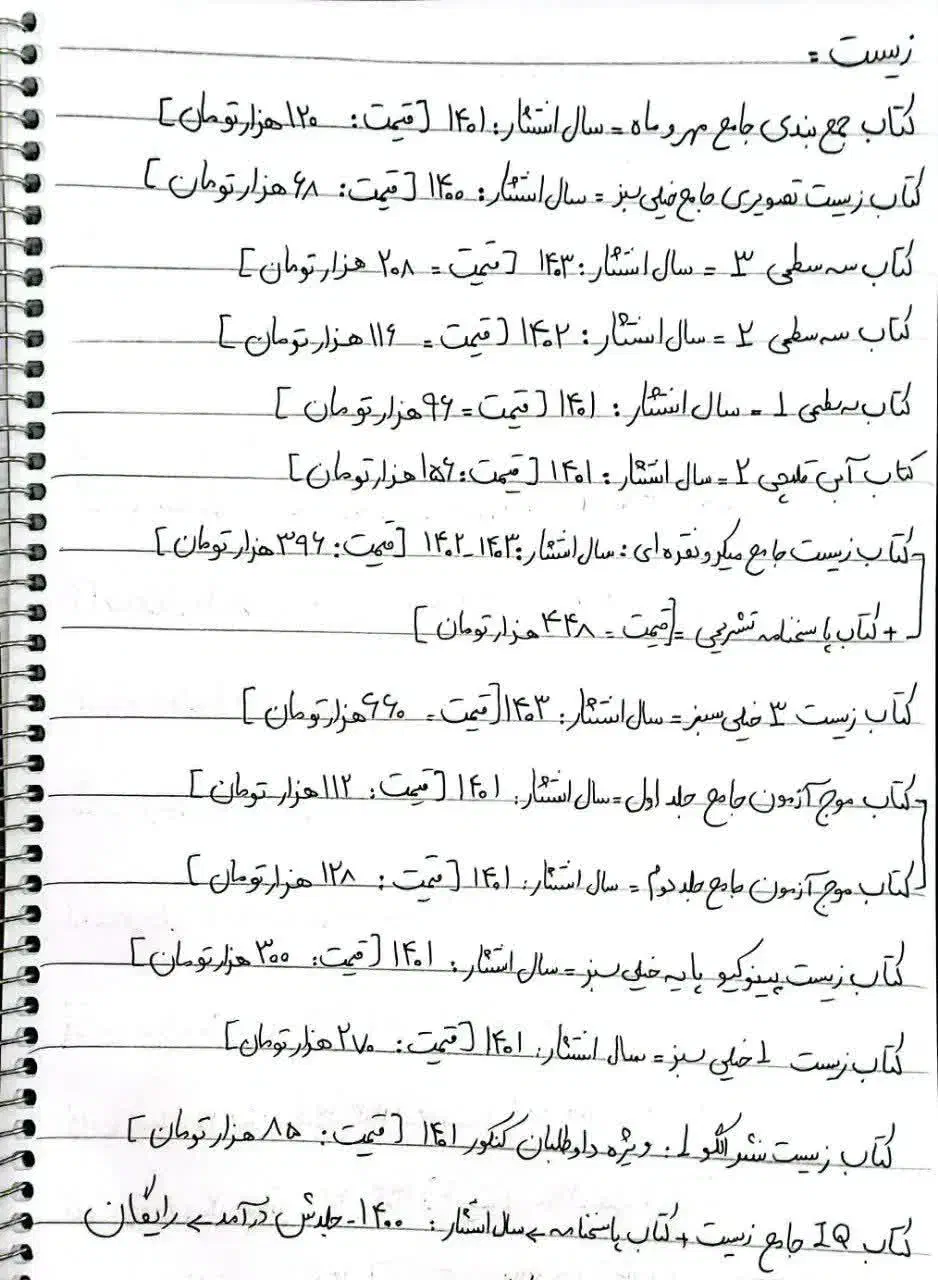 زیست =
کتاب جمع بندی جامع مهر و ماه = سال انتشار: ۱۴۰۱ [قیمت: ۱۲۰ هزار تومان]
کتاب زیست تصویری جامع خیلی سبز = سال انتشار: ۱۴۰۰ [قیمت: ۶۸ هزار تومان]
کتاب سه سطحی ۳ = سال انتشار: ۱۴۰۳ [قیمت = ۲۰۸ هزار تومان]
کتاب سه سطحی ۲ = سال انتشار: ۱۴۰۲ [قیمت = ۱۱۶ هزار تومان]
کتاب سه سطحی ۱ = سال انتشار: ۱۴۰۱ [قیمت = ۹۶ هزار تومان]
کتاب آبی قلمچی ۲ = سال انتشار: ۱۴۰۱ [قیمت: ۱۵۶ هزار تومان]
کتاب زیست جامع میکرو نقره ای: سال انتشار: ۱۴۰۳-۱۴۰۲ [قیمت: ۳۹۶ هزار تومان]
+ کتاب پاسخنامه تشریحی = [قیمت = ۴۴۸ هزار تومان]
کتاب زیست ۳ خیلی سبز = سال انتشار: ۱۴۰۳ [قیمت = ۶۶۰ هزار تومان]
کتاب موج آزمون جامع جلد اول = سال انتشار: ۱۴۰۱ [قیمت: ۱۱۲ هزار تومان]
کتاب موج آزمون جامع جلد دوم = سال انتشار: ۱۴۰۱ [قیمت: ۱۲۸ هزار تومان]
کتاب زیست پینوکیو پایه خیلی سبز = سال انتشار: ۱۴۰۱ [قیمت: ۳۰۰ هزار تومان]
کتاب زیست ۱ خیلی سبز = سال انتشار: ۱۴۰۱ [قیمت: ۲۷۰ هزار تومان]
کتاب زیست نشر الگو ۱: ویژه داوطلبان کنکور ۱۴۰۱ [قیمت: ۸۵ هزار تومان]
کتاب IQ جامع زیست + کتاب پاسخنامه ← سال انتشار: ۱۴۰۰ - جلدش درآمده ← رایگان